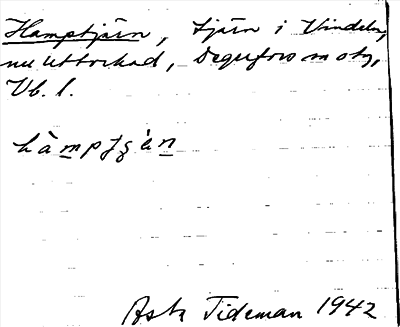 Hamptjärn, tjärn i Vindeln,
nu uttorkad, Degerfors sn o tg,
Vb. l.
hàmptʃæ̀n
Tideman 1942